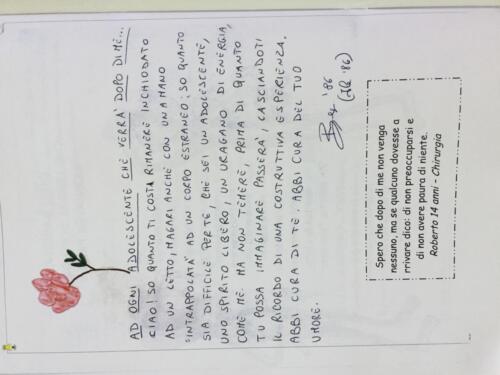 AD OGNI ADOLESCENTE CHE VERRA' DOPO DI ME...
CIAO! SO QUANTO TI COSTA RIMANERE INCHIODATO
AD UN LETTO, MAGARI ANCHE CON UNA MANO
"INTRAPPOLATA" AD UN CORPO ESTRANEO; SO QUANTO
SIA DIFFICILE PER TE, CHE SEI UN ADOLESCENTE,
UNO SPIRITO LIBERO, UN URAGANO DI ENERGIA,
COME ME. MA NON TEMERE, PRIMA DI QUANTO
TU POSSA IMMAGINARE PASSERA', LASCIANDOTI
IL RICORDO DI UNA COSTRUTTIVA ESPERIENZA.
ABBI CURA DI TE. ABBI CURA DEL TUO
UMORE.
'86
Spero che dopo di me non venga
nessuno, ma se qualcuno dovesse a
rrivare dico: di non preoccuparsi e
di non avere paura di niente.
Roberto 14 anni - Chirurgia